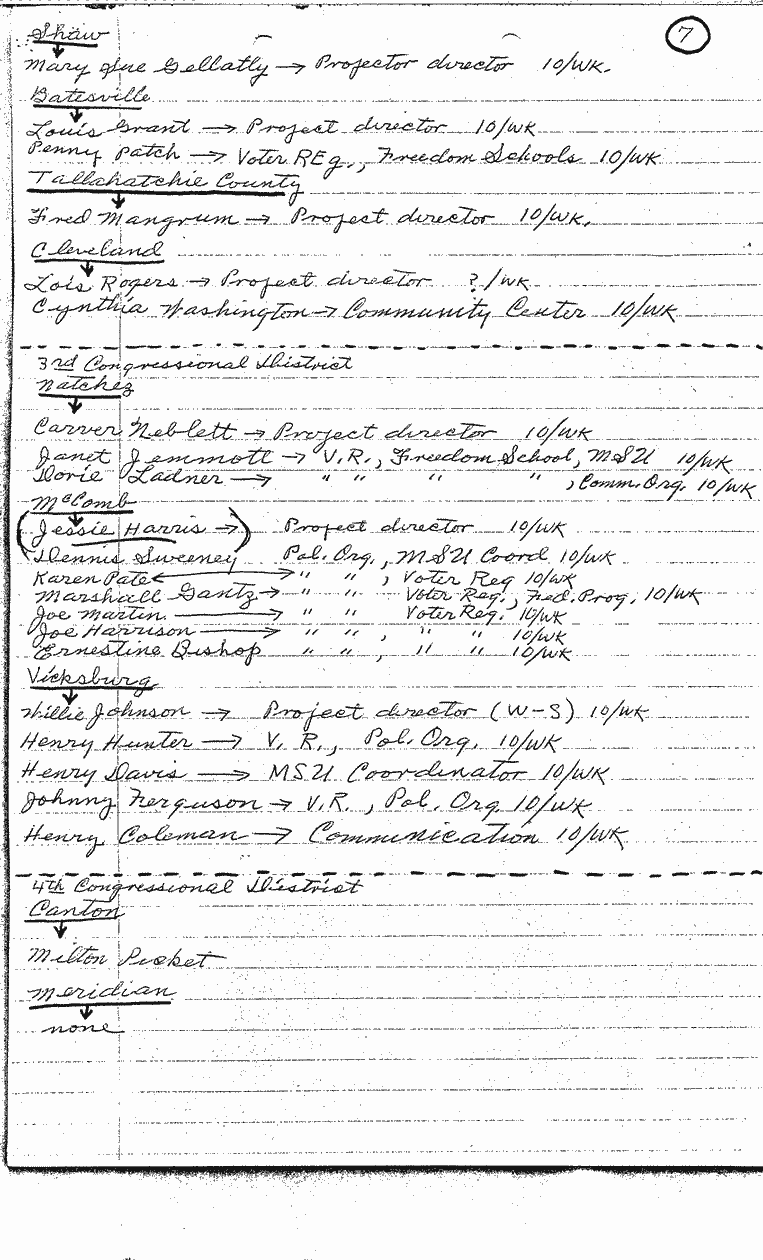 7
Shaw
Mary Sue Gellatly → Projector director 10/WK.
Batesville
Louis Grant → Project director 10/WK
Penny Patch → Voter REg., Freedom Schools 10/WK
Tallahatchie County
Fred Mangrum → Project director 10/WK.
Cleveland
Lois Rogers → Project director ?/WK
Cynthia Washington → Community Center 10/WK
3rd Congressional District
Natchez
Carver Neblett → Project director 10/WK
Janet Jemmott → V.R., Freedom School, MSU 10/WK
Dorie Ladner → " " " " , Comm. Org. 10/WK
McComb
(Jessie Harris →) Project director 10/WK
Dennis Sweeney Pol. Org., MSU Coord 10/WK
Karen Pate ↔ " " , Voter Reg 10/WK
Marshall Gantz → " " Voter Reg., Fed. Prog. 10/WK
Joe Martin → " " Voter Reg. 10/WK
Joe Harrison → " " , " " 10/WK
Ernestine Bishop " " , " " 10/WK
Vicksburg
Willie Johnson → Project director (W-S) 10/WK
Henry Hunter → V. R., Pol. Org. 10/WK
Henry Davis → MSU Coordinator 10/WK
Johnny Ferguson → V.R., Pol. Org 10/WK
Henry Coleman → Communication 10/WK
4th Congressional District
Canton
Milton
Meridian
none